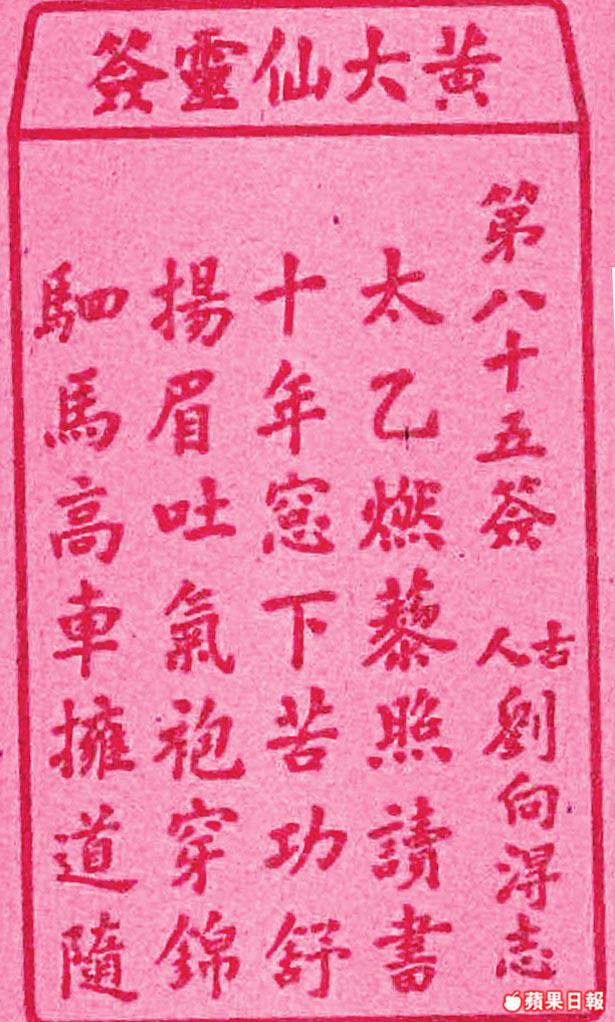 黃大仙靈簽
第八十五簽 古人 劉向淂志
太乙燃藜照讀書
十年窓下苦功舒
揚眉吐氣袍穿錦
駟馬高車擁道隨
蘋果日報